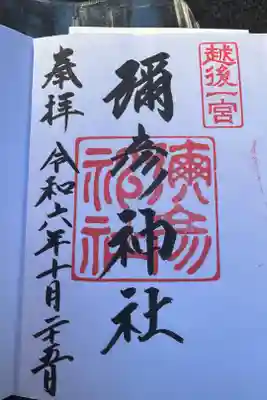 越後一宮
彌彦神社
奉拝 令和六年十月二十五日